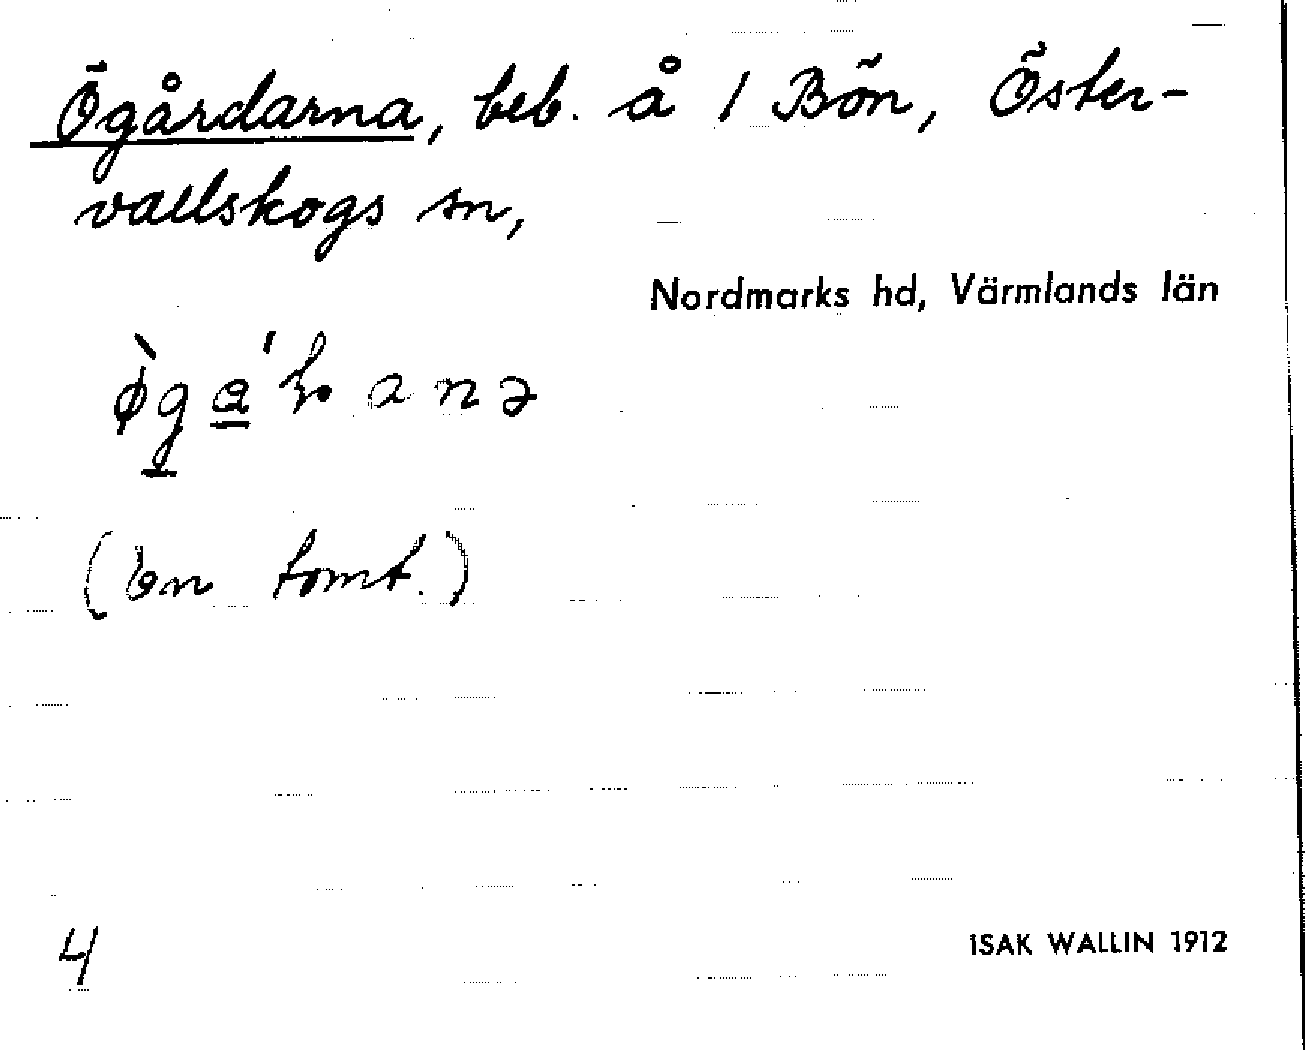 Ögårdarna, beb. å 1 Bön, Öster-
vallskogs sn,
Nordmarks hd, Värmlands län
(en tomt.)
4
ISAK WALLIN 1912